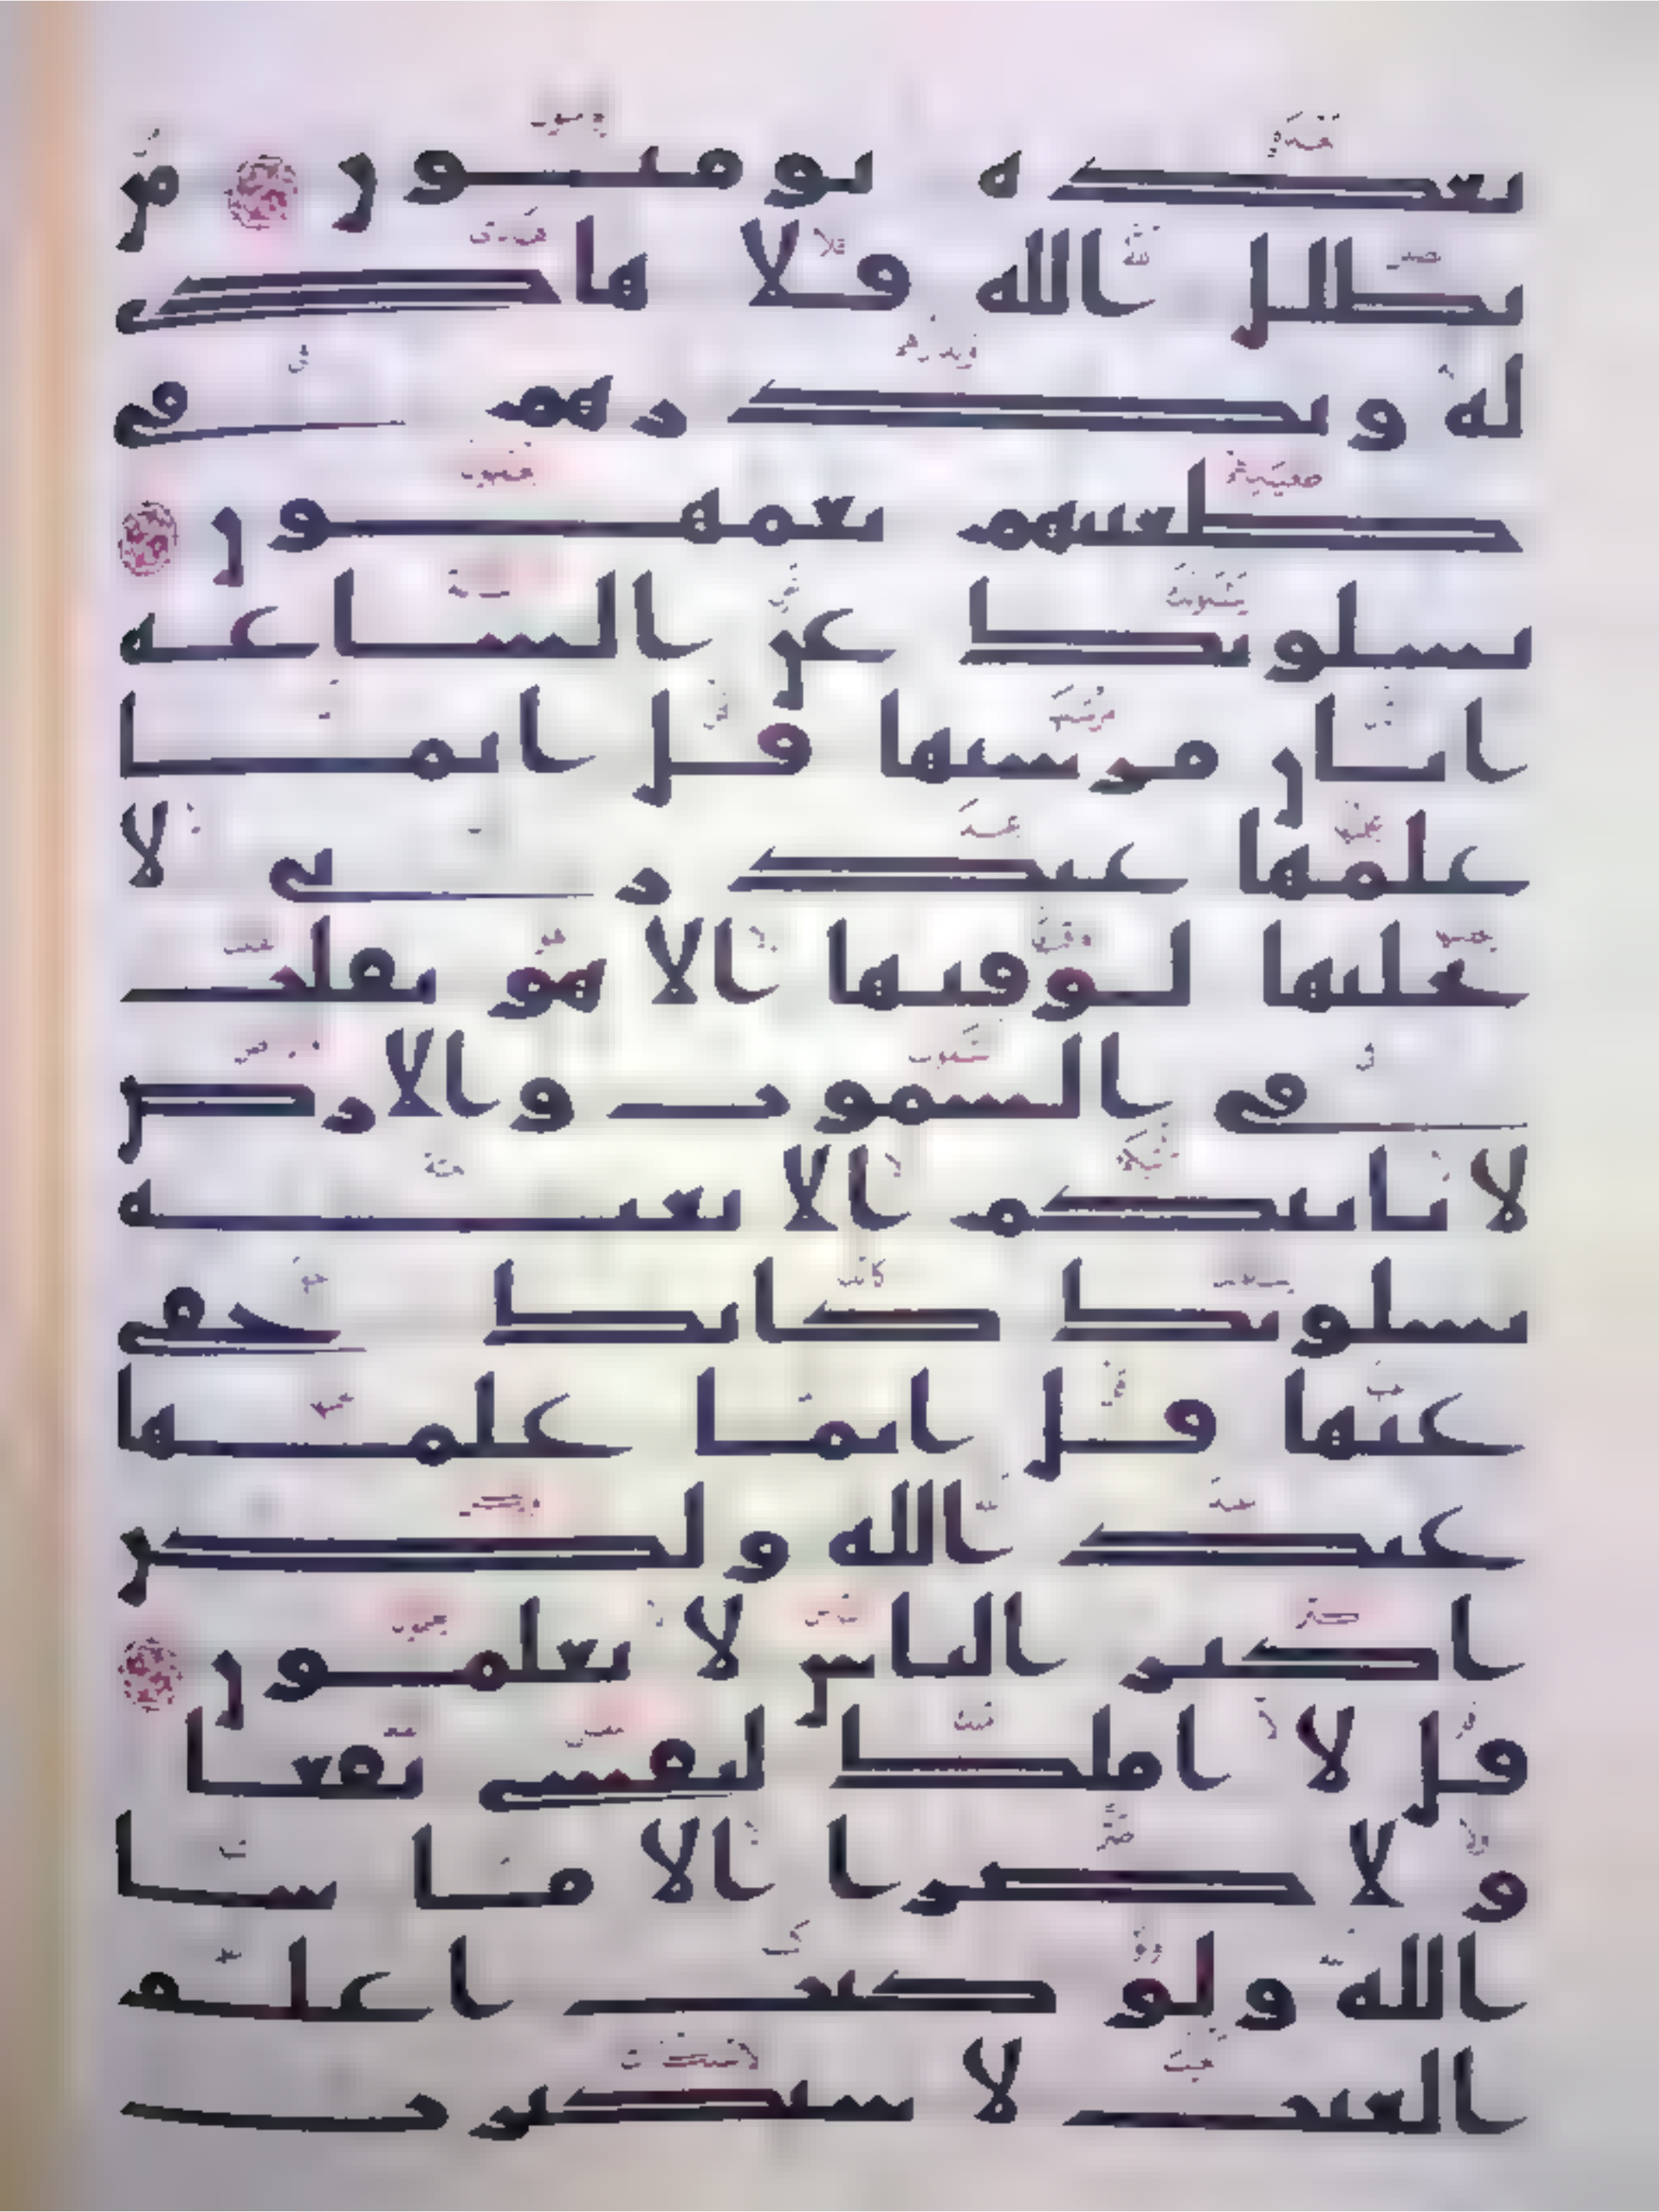 بعده يومنون من
يضلل الله فلا هادي
له ويذرهم في
طغينهم يعمهون
يسلونك عن الساعة
ايان مرسيها قل انما
علمها عند ربي لا
يجليها لوقتها الا هو ثقلت
في السموت والارض
لا تاتيكم الا بغتة
يسلونك كانك حفي
عنها قل انما علمها
عند الله ولكن
اكثر الناس لا يعلمون
قل لا املك لنفسي نفعا
ولا ضرا الا ما شا
الله ولو كنت اعلم
الغيب لا ستكثرت